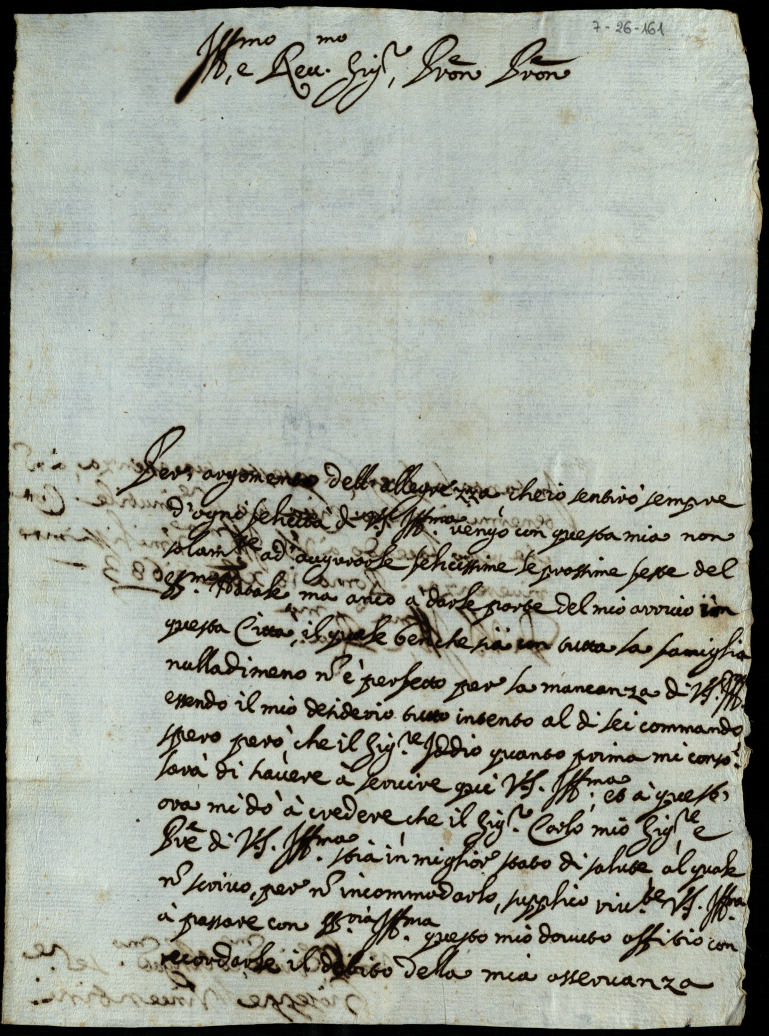 7-26-161
Ill.mo, e Reu.mo Sig.r, Pron Pron
Per argomento dell'allegrezza che io sentirò sempre
d'ogni felicità di VS. Ill.ma vengo con questa mia non
solam.te ad'augurarle felicissime le prossime feste del
Natale ma anco a darle parte del mio arrivo in
questa Città, il quale benche sia con tutta la famiglia
nulladimeno n è perfetto per la mancanza di VS. Ill.ma
essendo il mio desiderio tutto intento al di lei commando
spero però che il Sig.re Iddio quanto prima mi conso-
larà di havere à servire qui VS. Ill.ma, et à quest'
ora mi dò à credere che il Sig.r Carlo mio Sig.re e
Pre di VS. Ill.ma stia in miglior stato di salute al quale
n scrivo, per n incommodarlo, supplico viv.te VS. Ill.ma
à passare con Ill.ma questo mio dovuto offitio con
recordarle il debito della mia osservanza